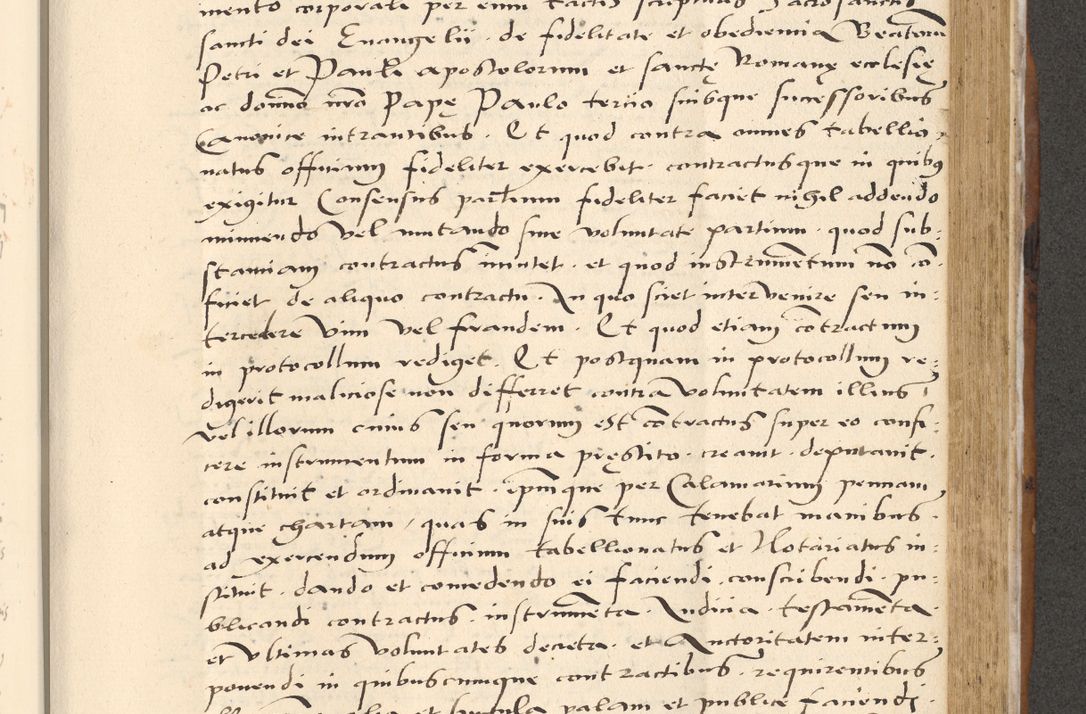 mento corporali per eum tactis scripturis sacrosanctis
sancti dei Euangelii · de fidelitate et obediencia Beatorum
Petri et Pauli apostolorum et sanctę Romanę ecclesię
ac domno nro Papę Paulo tertio suisque successoribus
Canonice intrantibus · Et quod contra omnes tabellio
natus officium fideliter exercebit · contractusque in quibus
exigitur Consensus partium fideliter faciet nihil addendo
minuendo vel mutando sine voluntate partium · quod sub:
stantiam contractus inmutet · et quod instrumentum no co
ficiet de aliquo contractu · In quo sciet intervenire seu in:
tercedere vim vel fraudem · Et quod etiam contractum
in protocollum rediget · Et postquam in protocollum re:
digerit maliciose non differret contra voluntatem illius
vel illorum cuius seu quorum est contractus super eo confi:
cere instrumentum in forma pręstito · creauit · deputauit ·
constituit et ordinauit · ipmque per Calamarium pennam
atque chartam, quas in suis tunc tenebat manibus ·
ad exercendum officium tabellionatus et Notariatus in:
stituit · dando et concedendo ei faciendi · conscibendi · pu:
blicandi contractus · instrumenta · Iudicia · testamenta ·
et vltimas voluntates decreta · et Auctoritatem inter:
ponendi in quibuscumque contractibus · requirentibus
palam et publice faciendi